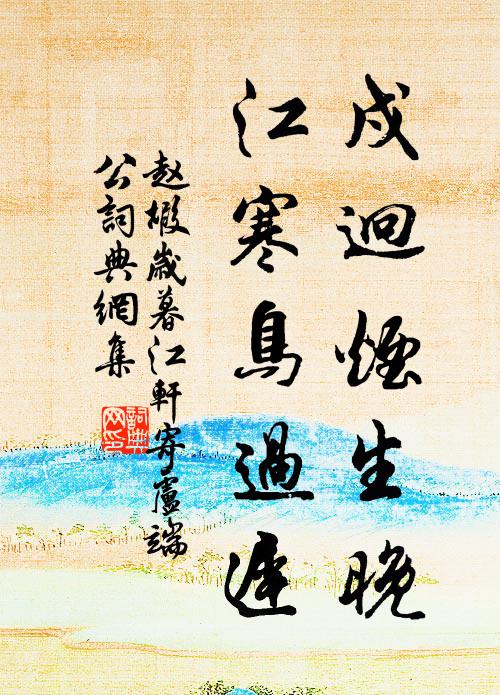 戍迥煙生晚
江寒鳥過遲
赵嘏歲暮江軒寄盧端
公詞典網集
詞典
网印